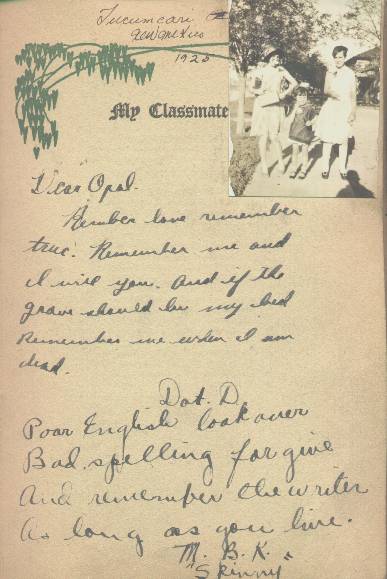 Tucumcari
New Mexico
1925
My Classmate
Dear Opal.
Rember love remember
true. Remember me and
I will you. And if the
grave should be my bed
Remember me when I am
dead.
Dot. D.
Poor English look over
Bad spelling forgive
And remember the writer
As long as you live.
M. B. K.
"Skinny